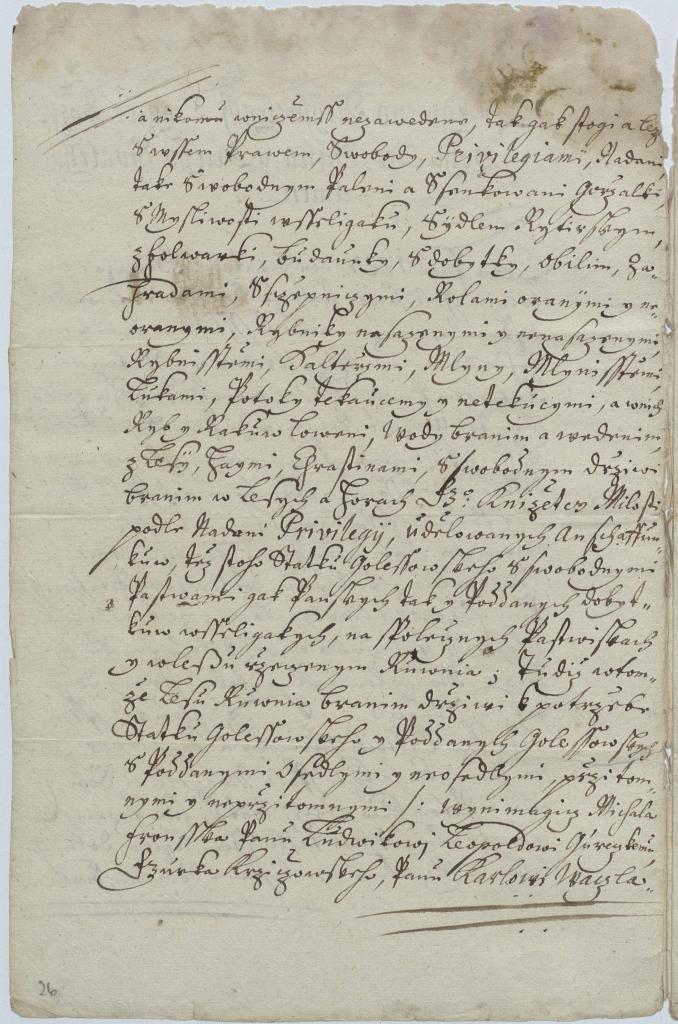 a nikomu wniczemß nezawedene, tak gak stogi a lež
S wssem Prawem, Swobody, Privilegiami, Nadani,
take Swobodnym Paleni a Ssenkowani Gorzalki,
S Mysliwosti wsseligaku, Sydlem Rytirskym,
z folwarki, budaunky, Sdobytky, obilim, Za-
hradami, Sszepniczymi, Rolami oranymi y ne-
oranymi, Rybniky nasazenymi y nenasazenymi,
Rybnisstiemi, Halterzmi, Mlyny, Mlynisstiemi,
Lukami, Potoky Tekaucymy y netekucymi, a wnich
Ryb y Rakuw Loweni, Wody branim a wedenim,
z Lesy, Haymi, Chrastinami, S swobodnym drziwi
branim w Lesych a Horach Kniżetcz Milosti
podle Nadani Privilegy, udelowanych Anschaffun-
kuw, też stoho Statku Golessowskeho S swobodnymi
Pastwami gak Panskych tak y Poddanych dobyt-
kuw wsseligakych, na spolecznych Pastwiskach
y w lesu rzeczenym Ruwnia; Tudiz wtom-
že Lesu Ruwnia branim drziwi k potrzebe
Statku Golessowskeho y Poddanych Golessowskych
S Poddanymi Osedlymi y neosedlymi, przitom-
nymi y neprzitomnymi /: wynimagicz Michala
Fronsska Panu Ludwikowi Leopoldowi
Karlowi Waczla-
26